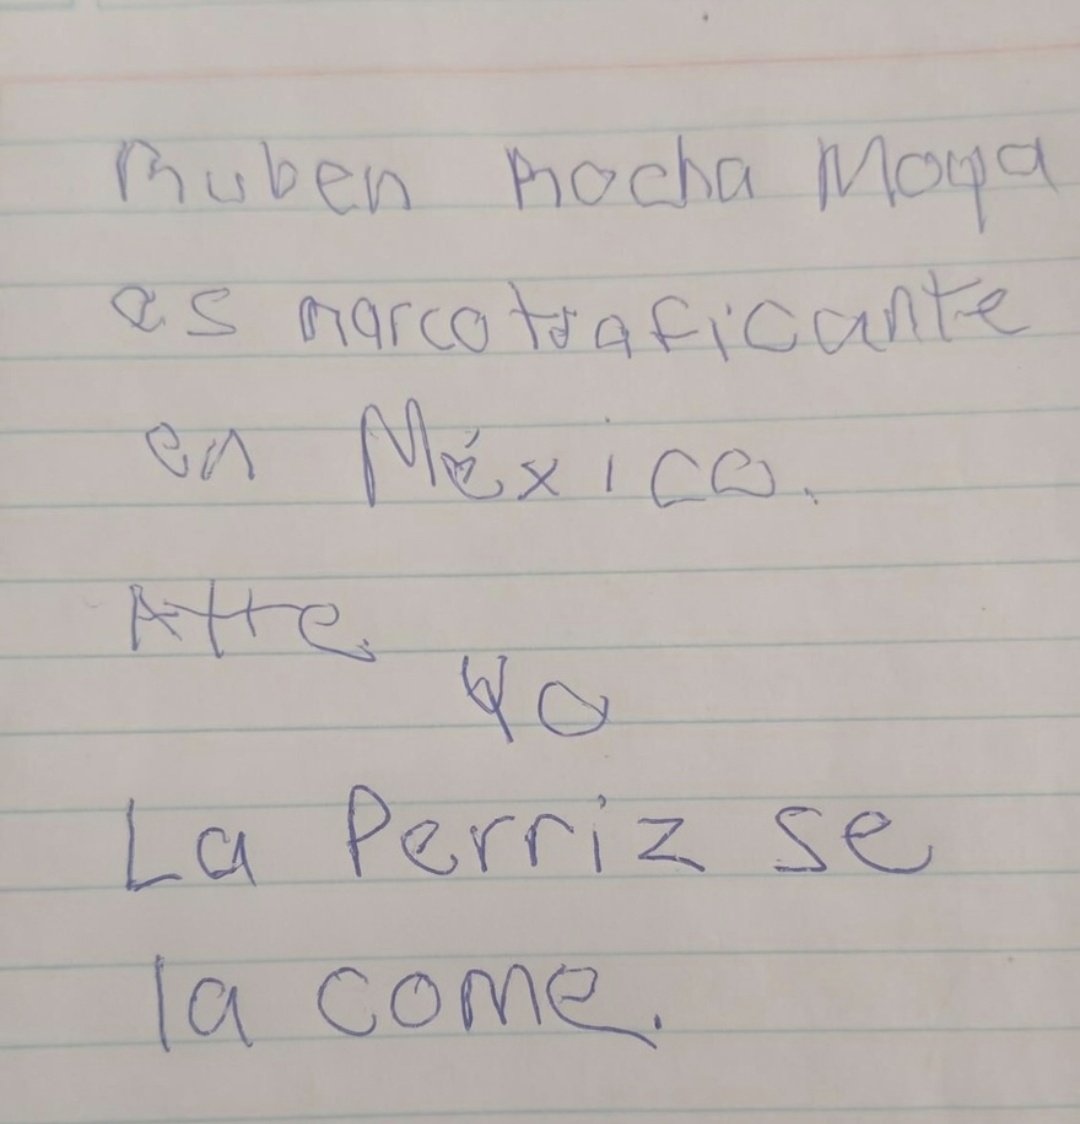 Ruben Rocha Moya
es narcotraficante
en México.
Atte.
Yo
La Perriz se
la come.